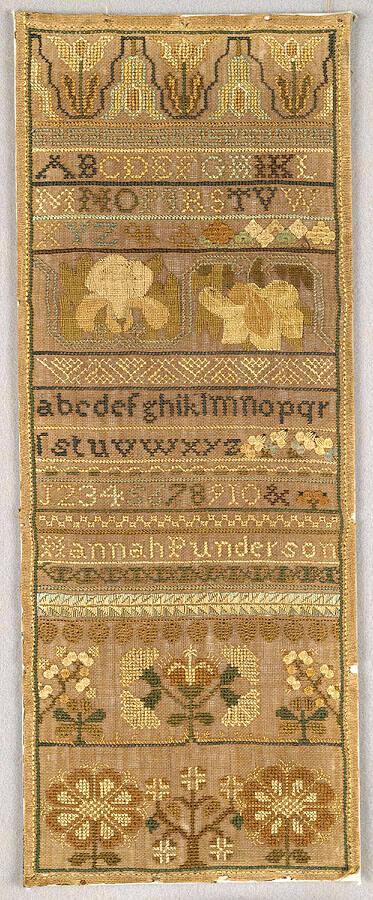 ABCDEFGHIKL
MNOPQRSTVW
XYZ
abcdefghiklmnopqr
ſstuvwwxyz
12345678910&
HannahPunderson